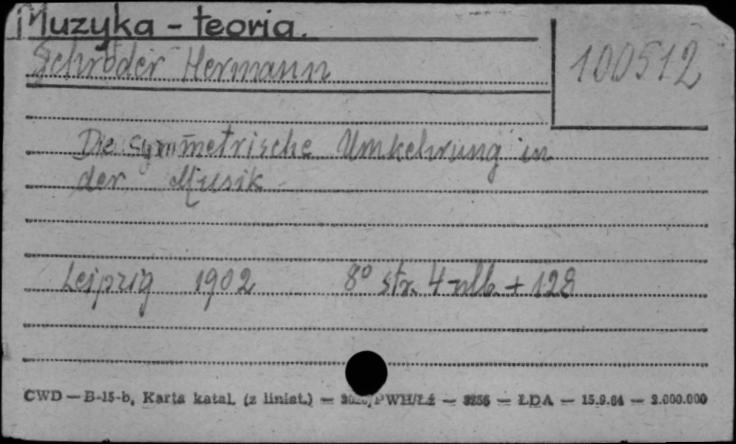 Muzyka - teoria.
Schröder Hermann
100512
Die symmetrische Umkehrung in
der Musik
Leipzig 1902 8° str. 4 nlb. + 128
CWD — B-15-b, Karta katal. (z liniat.) — PWH/Łź — 8256 — ŁDA — 15.9.64 — 2.000.000